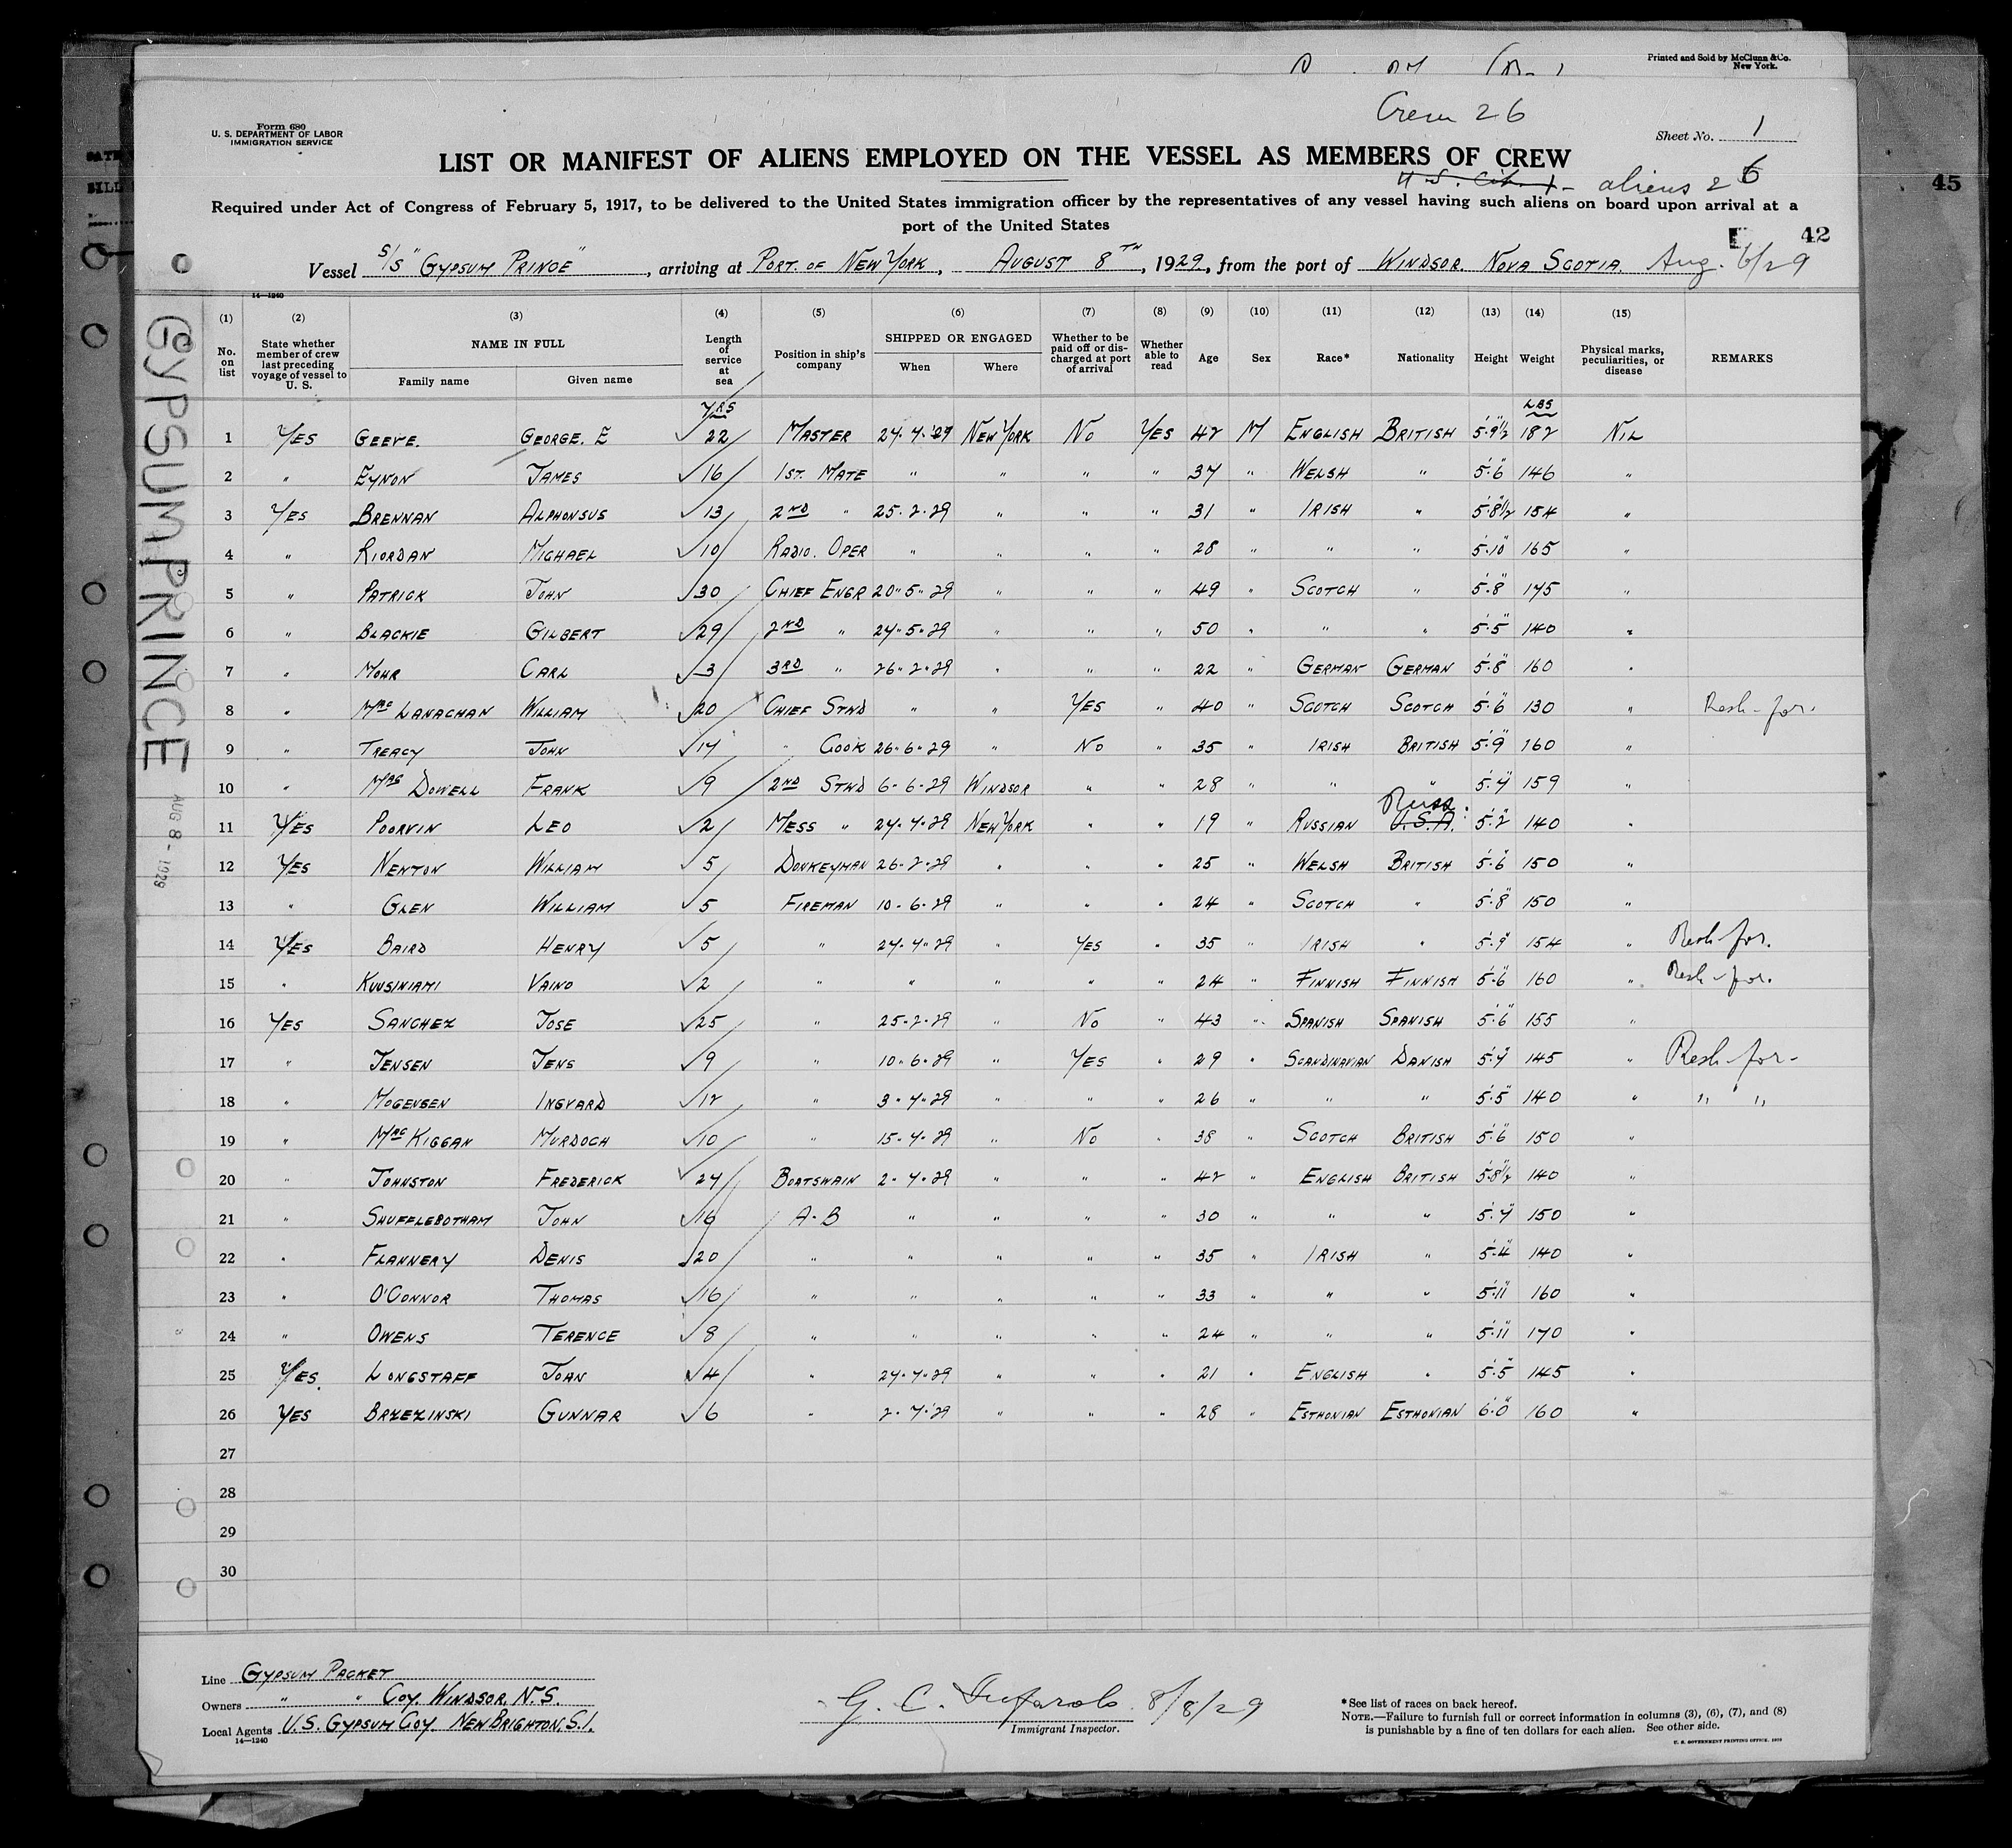 Printed and Sold by McClunn & Co.
New York.
Crew 26
Form 680
U. S. DEPARTMENT OF LABOR
IMMIGRATION SERVICE
Sheet No. 1
LIST OR MANIFEST OF ALIENS EMPLOYED ON THE VESSEL AS MEMBERS OF CREW
U.S. Cit. 1 - aliens 26
Required under Act of Congress of February 5, 1917, to be delivered to the United States immigration officer by the representatives of any vessel having such aliens on board upon arrival at a
port of the United States
45
42
Vessel S/S "GYPSUM PRINCE", arriving at PORT. OF NEW YORK, AUGUST 8TH, 1929, from the port of WINDSOR. NOVA SCOTIA. Aug. 6/29
14—1240
(1) (2) (3) (4) (5) (6) (7) (8) (9) (10) (11) (12) (13) (14) (15)
No. on list | State whether member of crew last preceding voyage of vessel to U. S. | NAME IN FULL Family name Given name | Length of service at sea | Position in ship's company | SHIPPED OR ENGAGED When Where | Whether to be paid off or discharged at port of arrival | Whether able to read | Age | Sex | Race* | Nationality | Height | Weight | Physical marks, peculiarities, or disease | REMARKS
YRS LBS
1 YES GEEVE. GEORGE. E 22 MASTER 24·7·29 NEW YORK NO YES 42 M ENGLISH BRITISH 5'·9"½ 182 NIL
2 " EYNON JAMES 16 1ST. MATE " " " " 37 " WELSH " 5'·6" 146 "
3 YES BRENNAN ALPHONSUS 13 2ND " 25·2·29 " " " 31 " IRISH " 5'·8"½ 154 "
4 " RIORDAN MICHAEL 10 RADIO. OPER " " " " 28 " " " 5'·10" 165 "
5 " PATRICK JOHN 30 CHIEF ENGR 20·5·29 " " " 49 " SCOTCH " 5'·8" 175 "
6 " BLACKIE GILBERT 29 2ND " 24·5·29 " " " 50 " " " 5'·5" 140 "
7 " MOHR CARL 3 3RD " 26·2·29 " " " 22 " GERMAN GERMAN 5'·8" 160 "
8 " MACLANACHAN WILLIAM 20 CHIEF STWD " " YES " 40 " SCOTCH SCOTCH 5'·6" 130 " Resh-for.
9 " TREACY JOHN 14 " COOK 26·6·29 " NO " 35 " IRISH BRITISH 5'·9" 160 "
10 " MAC DOWELL FRANK 9 2ND STWD 6·6·29 WINDSOR " " 28 " " " 5'·7" 159 "
11 YES POORVIN LEO 2 MESS " 24·7·29 NEW YORK " " 19 " RUSSIAN U.S.A. Russ: 5'·2" 140 "
12 YES NENTON WILLIAM 5 DONKEYMAN 26·2·29 " " " 25 " WELSH BRITISH 5'·6" 150 "
13 " GLEN WILLIAM 5 FIREMAN 10·6·29 " " " 24 " SCOTCH " 5'·8" 150 "
14 YES BAIRD HENRY 5 " 24·7·29 " YES " 35 " IRISH " 5'·9" 154 " Resh-for.
15 " KUUSINIAMI VAINO 2 " " " " " 24 " FINNISH FINNISH 5'·6" 160 " Resh-for.
16 YES SANCHEZ JOSE 25 " 25·2·29 " NO " 43 " SPANISH SPANISH 5'·6" 155 "
17 " JENSEN JENS 9 " 10·6·29 " YES " 29 " SCANDINAVIAN DANISH 5'·7" 145 " Resh-for-
18 " MOGENSEN INGVARD 12 " 3·7·29 " " " 26 " " " 5'·5" 140 " " "
19 " MAC KIGGAN MURDOCH 10 " 15·7·29 " NO " 38 " SCOTCH BRITISH 5'·6" 150 "
20 " JOHNSTON FREDERICK 24 BOATSWAIN 2·7·29 " " " 42 " ENGLISH BRITISH 5'·8"½ 140 "
21 " SHUFFLEBOTHAM JOHN 16 A·B " " " " 30 " " " 5'·7" 150 "
22 " FLANNERY DENIS 20 " " " " " 35 " IRISH " 5'·4" 140 "
23 " O'CONNOR THOMAS 16 " " " " " 33 " " " 5'·11" 160 "
24 " OWENS TERENCE 8 " " " " " 24 " " " 5'·11" 170 "
25 YES. LONGSTAFF JOHN 4 " 24·7·29 " " " 21 " ENGLISH " 5'·5" 145 "
26 YES BRZEZINSKI GUNNAR 6 " 2·7·29 " " " 28 " ESTHONIAN ESTHONIAN 6'·0" 160 "
27
28
29
30
GYPSUM PRINCE
AUG 8 - 1929
Line GYPSUM PACKET
Owners " " COY. WINDSOR, N.S.
Local Agents U.S. GYPSUM COY. NEW BRIGHTON, S.I.
14—1240
G. C. 8/8/29
Immigrant Inspector.
*See list of races on back hereof.
NOTE.—Failure to furnish full or correct information in columns (3), (6), (7), and (8)
is punishable by a fine of ten dollars for each alien. See other side.
U. S. GOVERNMENT PRINTING OFFICE.